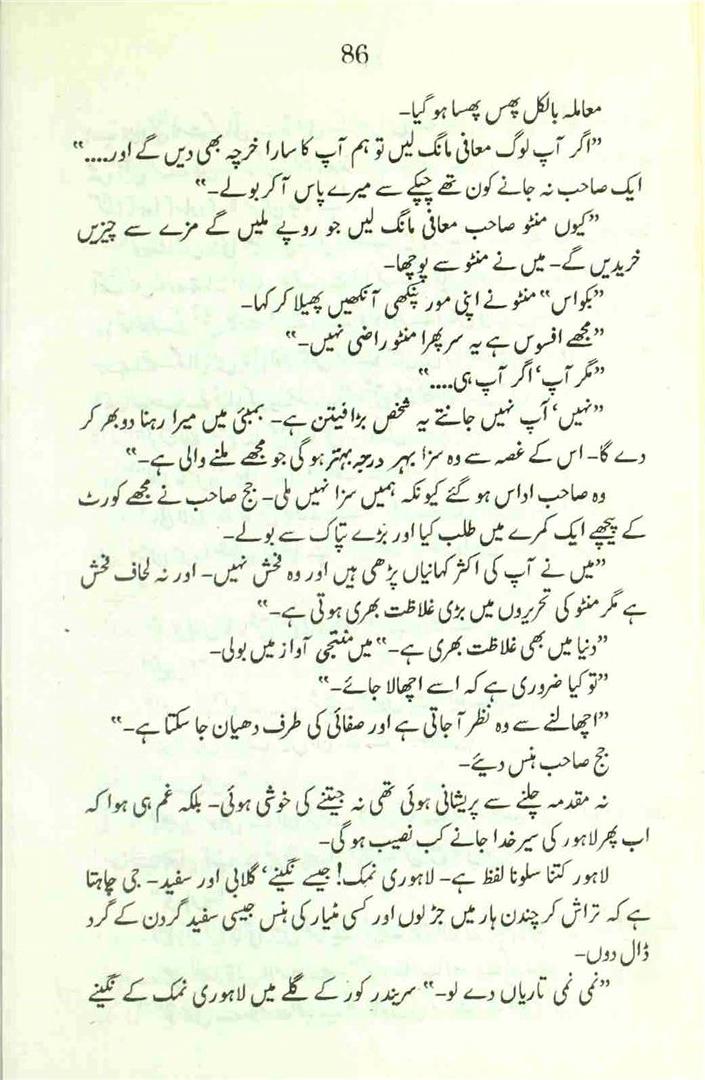 86
معاملہ بالکل پھس پھسا ہو گیا۔
”اگر آپ لوگ معافی مانگ لیں تو ہم آپ کا سارا خرچہ بھی دیں گے اور....“
ایک صاحب نہ جانے کون تھے چپکے سے میرے پاس آ کر بولے۔“
”کیوں منٹو صاحب معافی مانگ لیں جو روپے ملیں گے مزے سے چیزیں
خریدیں گے۔ میں نے منٹو سے پوچھا۔
”بکواس“ منٹو نے اپنی مور پنکھی آنکھیں پھیلا کر کہا۔
”مجھے افسوس ہے یہ سر پھرا منٹو راضی نہیں۔“
”مگر آپ‘ اگر آپ ہی....“
”نہیں‘ آپ نہیں جانتے یہ شخص بڑا فیتن ہے۔ بمبئی میں میرا رہنا دوبھر کر
دے گا۔ اس کے غصہ سے وہ سزا بہر درجہ بہتر ہو گی جو مجھے ملنے والی ہے۔“
وہ صاحب اداس ہو گئے کیونکہ ہمیں سزا نہیں ملی۔ جج صاحب نے مجھے کورٹ
کے پیچھے ایک کمرے میں طلب کیا اور بڑے تپاک سے بولے۔
”میں نے آپ کی اکثر کہانیاں پڑھی ہیں اور وہ فحش نہیں۔ اور نہ لحاف فحش
ہے مگر منٹو کی تحریروں میں بڑی غلاظت بھری ہوتی ہے۔“
”دنیا میں بھی غلاظت بھری ہے۔“ میں منتجی آواز میں بولی۔
”تو کیا ضروری ہے کہ اسے اچھالا جائے۔“
”اچھالنے سے وہ نظر آ جاتی ہے اور صفائی کی طرف دھیان جا سکتا ہے۔“
جج صاحب ہنس دیئے۔
نہ مقدمہ چلنے سے پریشانی ہوئی تھی نہ جیتنے کی خوشی ہوئی۔ بلکہ غم ہی ہوا کہ
اب پھر لاہور کی سیر خدا جانے کب نصیب ہو گی۔
لاہور کتنا سلونا لفظ ہے۔ لاہوری نمک! جیسے نگینے‘ گلابی اور سفید۔ جی چاہتا
ہے کہ تراش کر چندن ہار میں جڑ لوں اور کسی مٹیار کی ہنس جیسی سفید گردن کے گرد
ڈال دوں۔
”نمی نمی تاریاں دے لو۔“ سریندر کور کے گلے میں لاہوری نمک کے نگینے